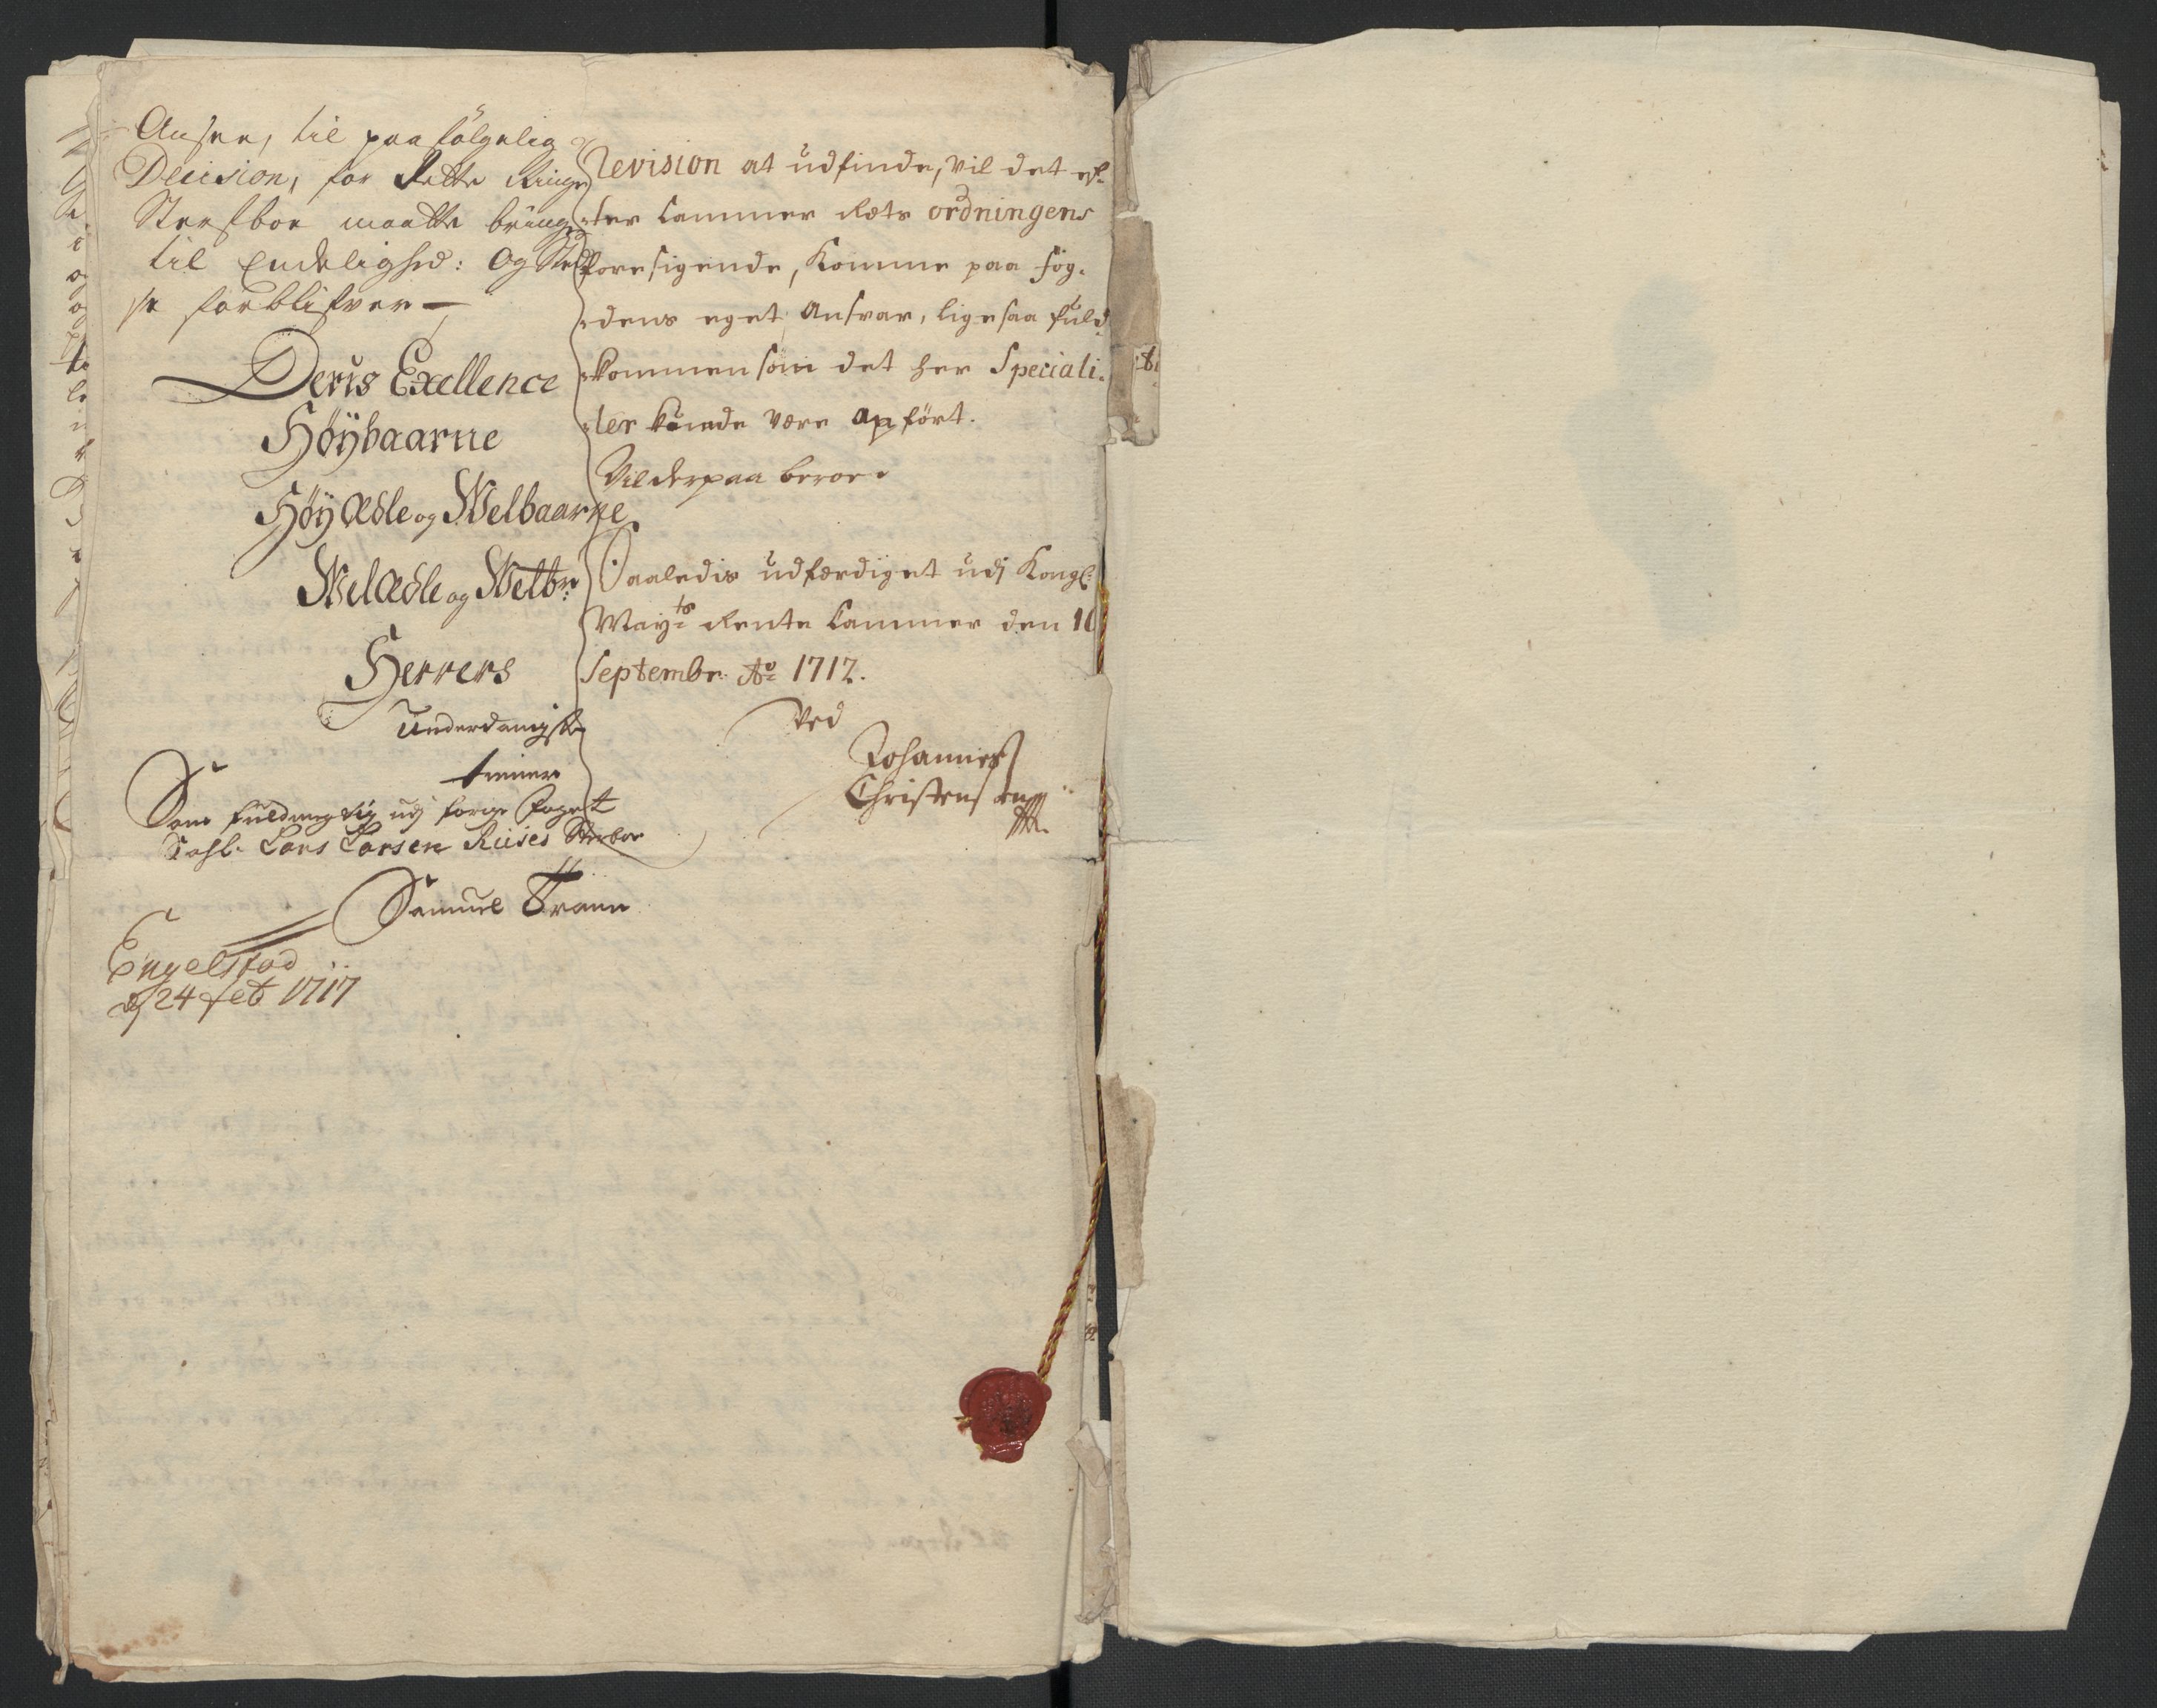 Ansee, til paafølgelig
Decision, for dette Ringe
Sterfboe maatte bringes
til Endelighed: Og
forblifver
Deris Exellence
Høÿbaarne
Høÿ Ædle og Welbaarne
Wel Ædle og Welb:ne
Herrers
underdanigste
tiener
Som fuldmegtig udj forige Foget
Sahl. Lars Larsen Riises Sterboe
Samuel Trane
Engelstad
d 24 feb 1717
Revision at udfinde, vil det ef-
ter Cammer Rets ordningens
foresigende, komme paa fog-
dens eget Ansvar, ligesaa fuld-
kommen som det her Speciali-
ter kunde være anført.
Vil derpaa beroe.
Saaledis udfærdiget udj Kongl:
May:ts Rente Cammer den 10
Septembr: Ao 1712.
Ved
Johannes
Christensen